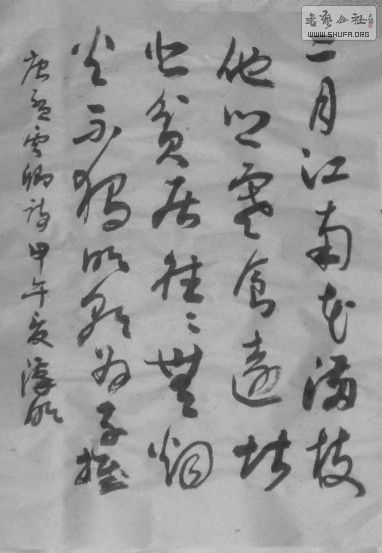 書藝公社
WWW.SHUFA.ORG
二月江南花滿枝
他鄉寒食遠堪
悲貧居往〻無烟
火不獨明朝為子推
唐孟雲卿詩甲午夏